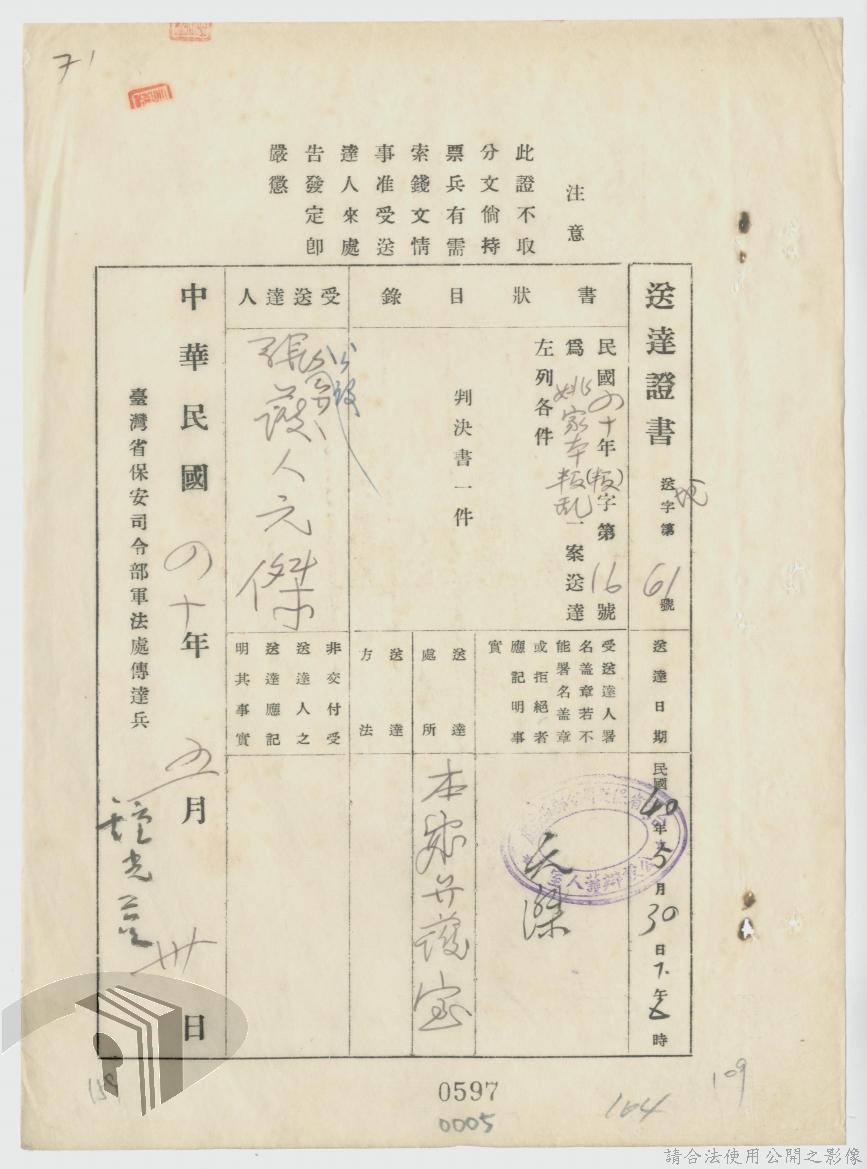 71
注意
此證不取
分文倘持
票兵有需
索錢文情
事准受送
達人來處
告發定卽
嚴懲
送達證書
送字第61號
書狀目錄
民國四十年(叛)字第16號
為姚家本叛乱一案送達
左列各件
判決書一件
受送達人
公設
張護人元傑
送達日期
民國40年5月30日下午5時
受送達人署
名盖章若不
能署名盖章
或拒絕者
應記明事
實
元傑
送達
處所
本處弁護室
送達
方法
非交付受
送達人之
送達應記
明其事實
中華民國四十年五月卅日
臺灣省保安司令部軍法處傳達兵
0597
0005
164
109
請合法使用公開之影像